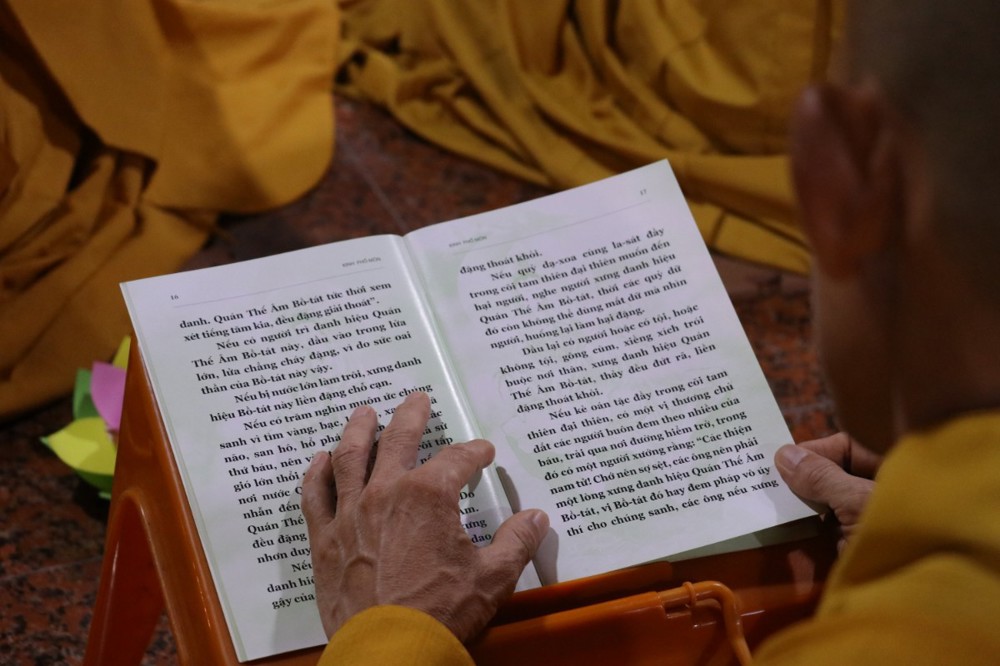 16
KINH PHỔ MÔN
danh. Quán Thế Âm Bồ-tát tức thời xem
xét tiếng tăm kia, đều đặng giải thoát”.
Nếu có người trì danh hiệu Quán
Thế Âm Bồ-tát này, dầu vào trong lửa
lớn, lửa chẳng cháy đặng, vì do sức oai
thần của Bồ-tát này vậy.
Nếu bị nước lớn làm trôi, xưng danh
hiệu Bồ-tát này liền đặng chỗ cạn.
Nếu có trăm nghìn muôn ức chúng
sanh vì tìm vàng, bạc, l
não, san hô, hổ phá
thứ báu, nên v
gió lớn thổi
nơi nước q
nhẫn đến
Quán Thế
đều đặng
nhơn duy
Nếu
danh hiệ
gậy của
KINH PHỔ MÔN
17
đặng thoát khỏi.
Nếu quỷ dạ-xoa cùng la-sát đầy
trong cõi tam thiên đại thiên muốn đến
hại người, nghe người xưng danh hiệu
Quán Thế Âm Bồ-tát, thời các quỷ dữ
đó còn không thể dùng mắt dữ mà nhìn
người, huống lại làm hại đặng.
Dầu lại có người hoặc có tội, hoặc
không tội, gông cùm, xiềng xích trói
buộc nơi thân, xưng danh hiệu Quán
Thế Âm Bồ-tát, thảy đều đứt rã, liền
đặng thoát khỏi.
Nếu kẻ oán tặc đầy trong cõi tam
thiên đại thiên, có một vị thương chủ
dắt các người buôn đem theo nhiều của
báu, trải qua nơi đường hiểm trở, trong
đó có một người xướng rằng: “Các thiện
nam tử! Chớ nên sợ sệt, các ông nên phải
một lòng xưng danh hiệu Quán Thế Âm
Bồ-tát, vị Bồ-tát đó hay đem pháp vô úy
thí cho chúng sanh, các ông nếu xưng